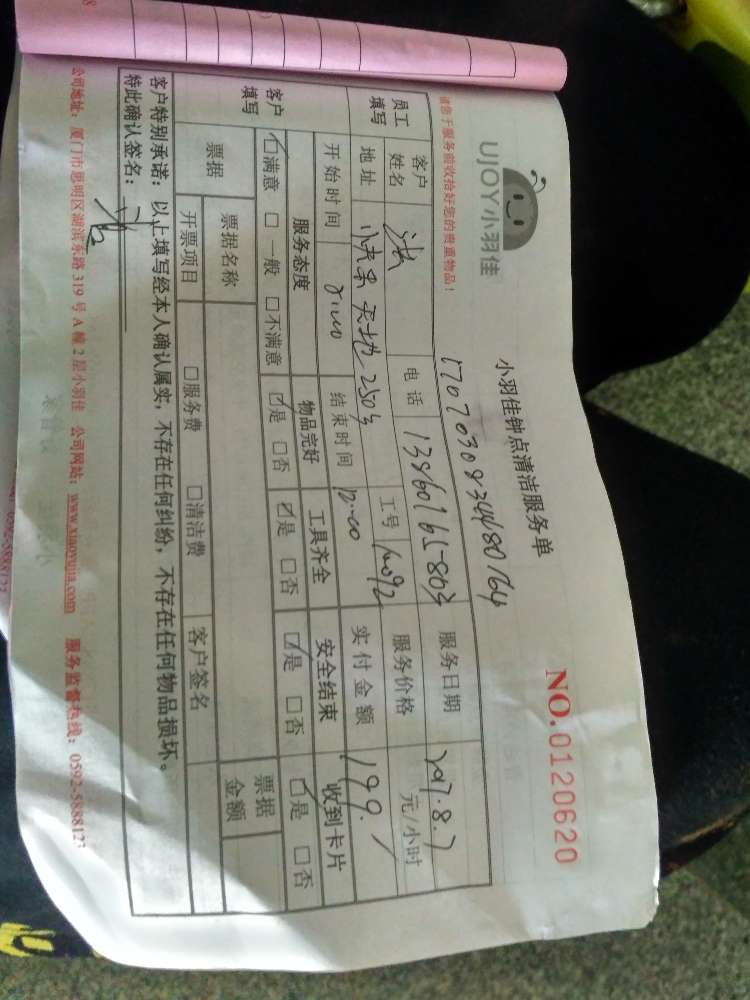 UJOY小羽佳
小羽佳钟点清洁服务单
NO.0120620
请您于服务前收拾好您的贵重物品！
员工填写
客户姓名 电话 服务日期 2017.8.7
地址 2503 工号 服务价格 元/小时
开始时间 结束时间 12:00 实付金额 199.
客户填写
服务态度 物品完好 工具齐全 安全结束 收到卡片
☑满意 □一般 □不满意 ☑是 □否 ☑是 □否 ☑是 □否 ☑是 □否
票据 票据名称 票据金额
开票项目 □服务费 □清洁费 客户签名
客户特别承诺：以上填写经本人确认属实，不存在任何纠纷，不存在任何物品损坏。
特此确认签名：
公司地址：厦门市思明区湖滨东路319号A幢2层小羽佳 公司网站：www.xiaoyujia.com 服务监督热线：0592-5888123